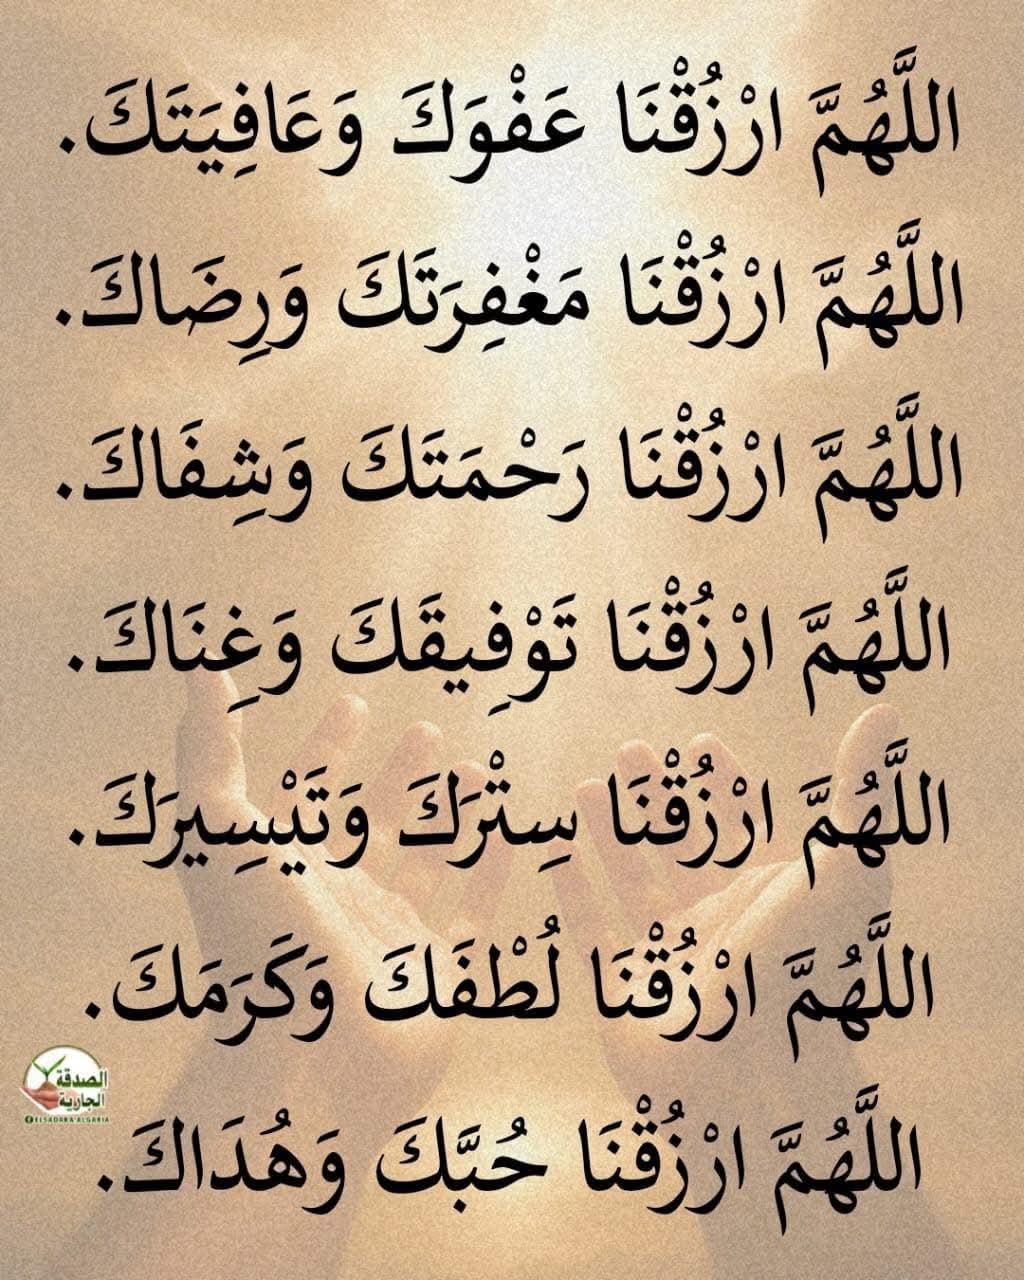 اللَّهُمَّ ارْزُقْنَا عَفْوَكَ وَعَافِيَتَكَ.
اللَّهُمَّ ارْزُقْنَا مَغْفِرَتَكَ وَرِضَاكَ.
اللَّهُمَّ ارْزُقْنَا رَحْمَتَكَ وَشِفَاكَ.
اللَّهُمَّ ارْزُقْنَا تَوْفِيقَكَ وَغِنَاكَ.
اللَّهُمَّ ارْزُقْنَا سِتْرَكَ وَتَيْسِيرَكَ.
اللَّهُمَّ ارْزُقْنَا لُطْفَكَ وَكَرَمَكَ.
الصدقة
الجارية
ELSADAKA ALGARIA
اللَّهُمَّ ارْزُقْنَا حُبَّكَ وَهُدَاكَ.